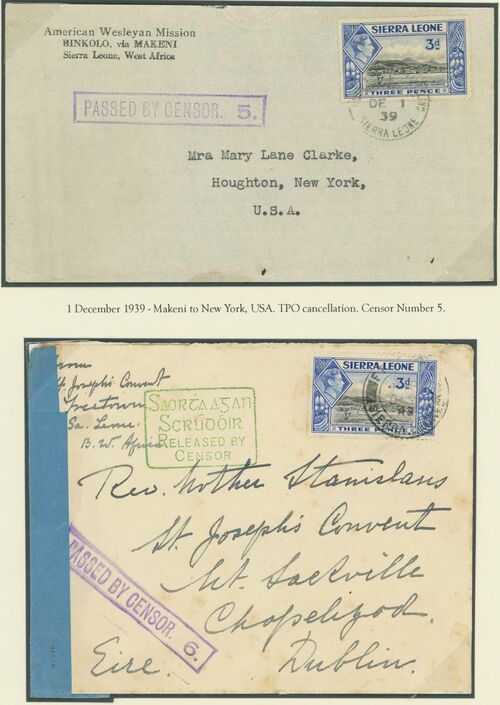 American Wesleyan Mission
BINKOLO, via MAKENI
Sierra Leone, West Africa
SIERRA LEONE
3d
THREE PENCE
DE 1
39
SIERRA LEONE
PASSED BY CENSOR. 5.
Mra Mary Lane Clarke,
Houghton, New York,
U.S.A.
1 December 1939 - Makeni to New York, USA. TPO cancellation. Censor Number 5.
St. Josephs Convent
Freetown
Sa. Leone.
B. W. Africa
SAORTA AG AN
SCRÚDÓIR
RELEASED BY
CENSOR
SIERRA LEONE
3d
THREE PENCE
Rev. Mother Stanislaus
St. Josephs Convent
Mt. Sackville
Chapelizod.
Eire. Dublin.
PASSED BY CENSOR. 6.